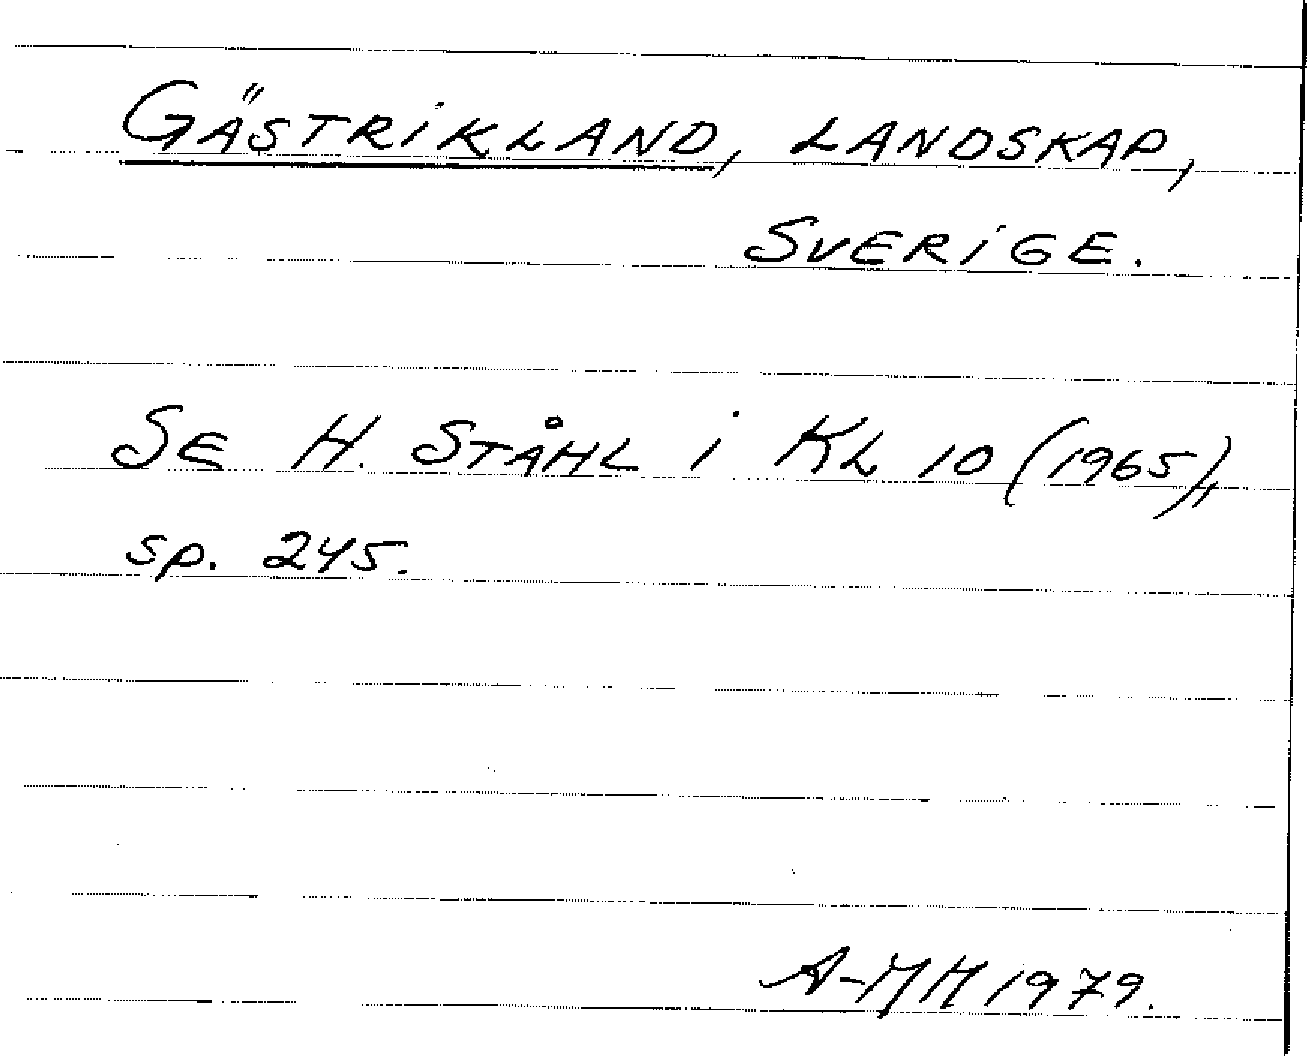 GÄSTRIKLAND, LANDSKAP,
SVERIGE.
SE H. STÅHL i KL 10 (1965),
sp. 245.
A-MH 1979.